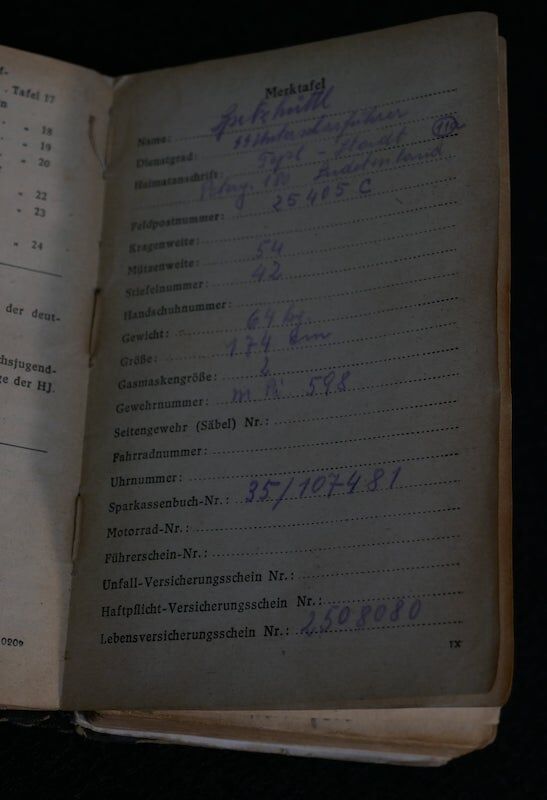 f-
. Tafel 17
n
„ 18
„ 19
„ 20
„ 22
„ 23
„ 24
der deut-
chsjugend-
ge der HJ.
0209
Merktafel
Name:
Dienstgrad: Unterscharführer
Heimatanschrift: Tepl - Stadt
180 Sudetenland
Feldpostnummer: 25405 C
Kragenweite:
Mützenweite: 54
Stiefelnummer: 42
Handschuhnummer:
Gewicht: 64 kg.
Größe: 174 cm
Gasmaskengröße: 2
Gewehrnummer: m Pi 598
Seitengewehr (Säbel) Nr.:
Fahrradnummer:
Uhrnummer:
Sparkassenbuch-Nr.: 35/107481
Motorrad-Nr.:
Führerschein-Nr.:
Unfall-Versicherungsschein Nr.:
Haftpflicht-Versicherungsschein Nr.:
Lebensversicherungsschein Nr.: 2508080
IX